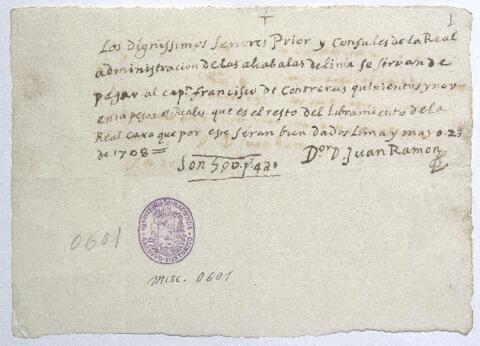 1
Los dignissimos Señores Prior y Consules de la Real
administracion de las alcabalas de lima se sirvan de
pagar al capⁿ francisco de Contreras quinientos y nov
enta pesos 4 Reales que es el resto del Libramiento de la
Real caxa que por ese seran bien dados Lima y mayo 23
de 1708
Son 590 p. 4 rs Dor D. Juan Ramon
MINISTERIO DE HACIENDA
ARCHIVO HISTORICO
0601
misc. 0601